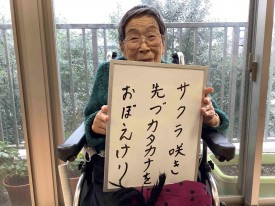 サクラ咲き
先づカタカナを
おぼえけり